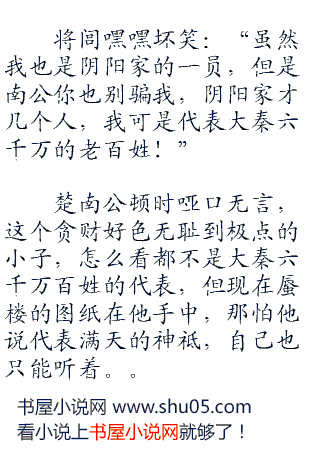 将闾嘿嘿坏笑：“虽然
我也是阴阳家的一员，但是
南公你也别骗我，阴阳家才
几个人，我可是代表大秦六
千万的老百姓！”
楚南公顿时哑口无言，
这个贪财好色无耻到极点的
小子，怎么看都不是大秦六
千万百姓的代表，但现在蜃
楼的图纸在他手中，那怕他
说代表满天的神祇，自己也
只能听着。。
书屋小说网 www.shu05.com
看小说上书屋小说网就够了！